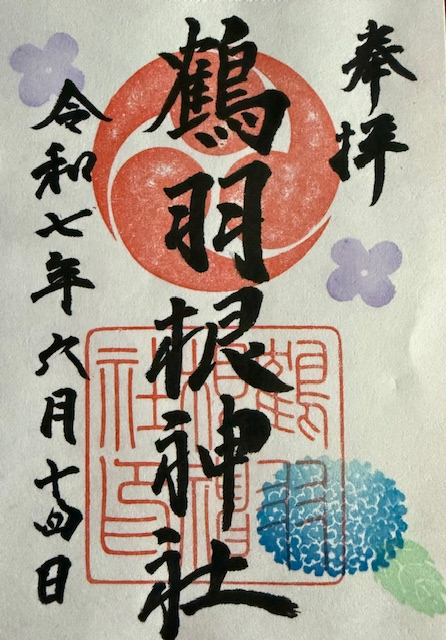 奉拝
鶴羽根神社
令和七年六月十四日
鶴羽根神社印